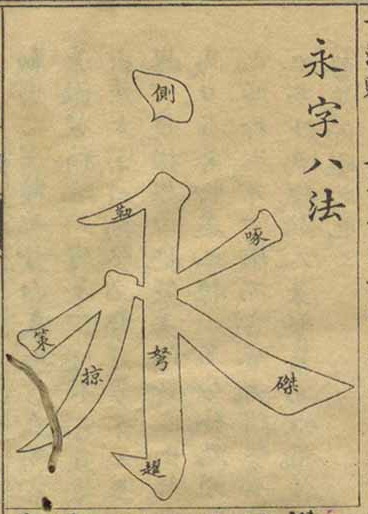 永字八法
側
勒
啄
策
掠
弩
磔
趯